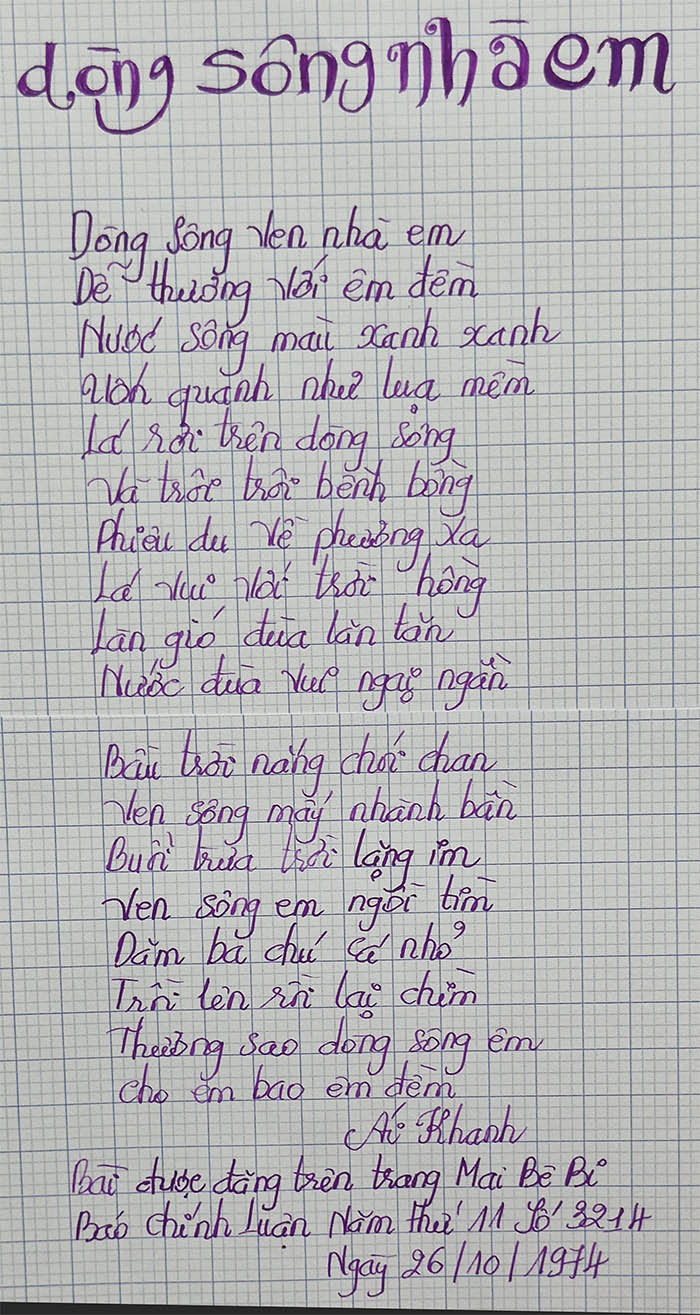 dòng sông nhà em
Dòng sông ven nhà em
Dễ thương với êm đềm
Nước sông màu xanh xanh
Uốn quanh như lụa mềm
Lá rơi trên dòng sông
Và trôi trôi bềnh bồng
Phiêu du về phương xa
Lá vui với trời hồng
Làn gió đùa lăn tăn
Nước đùa vui ngại ngần
Bầu trời nắng chói chan
Ven sông mấy nhành bần
Buổi trưa trời lặng im
Ven sông em ngồi tìm
Dăm ba chú cá nhỏ
Trồi lên rồi lại chìm
Thương sao dòng sông êm
Cho em bao êm đềm
Ái Khanh
Bài được đăng trên trang Mai Bê Bi
Báo Chính Luận Năm thứ 11 Số 3214
Ngày 26/10/1974